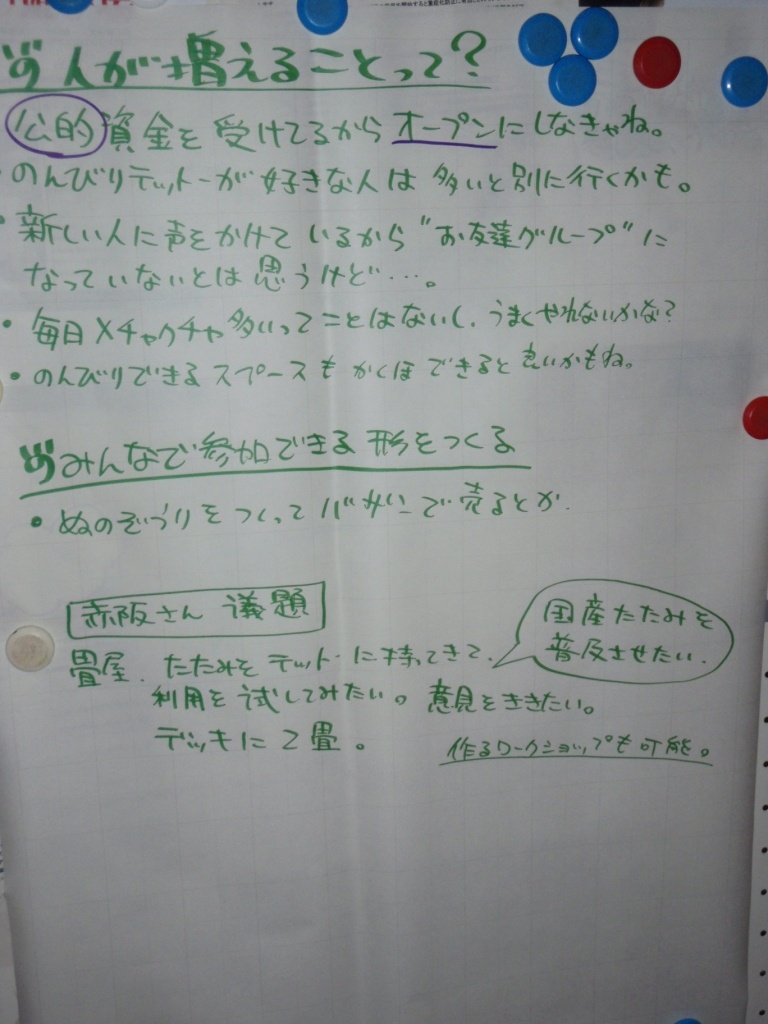 人が増えることって?
公的資金を受けてるからオープンにしなきゃね。
・のんびりテットーが好きな人は多いと別に行くかも。
・新しい人に声をかけているから"お友達グループ"に
なっていないとは思うけど…。
・毎日メチャクチャ多いってことはないし、うまくやれないかな?
・のんびりできるスペースもかくほできると良いかもね。
みんなで参加できる形をつくる
・ぬのぞうりをつくってバザーで売るとか.
赤阪さん 議題
国産たたみを
普及させたい.
畳屋.たたみをテットーに持ってきて.
利用を試してみたい。意見をききたい。
デッキに2畳。
作るワークショップも可能。